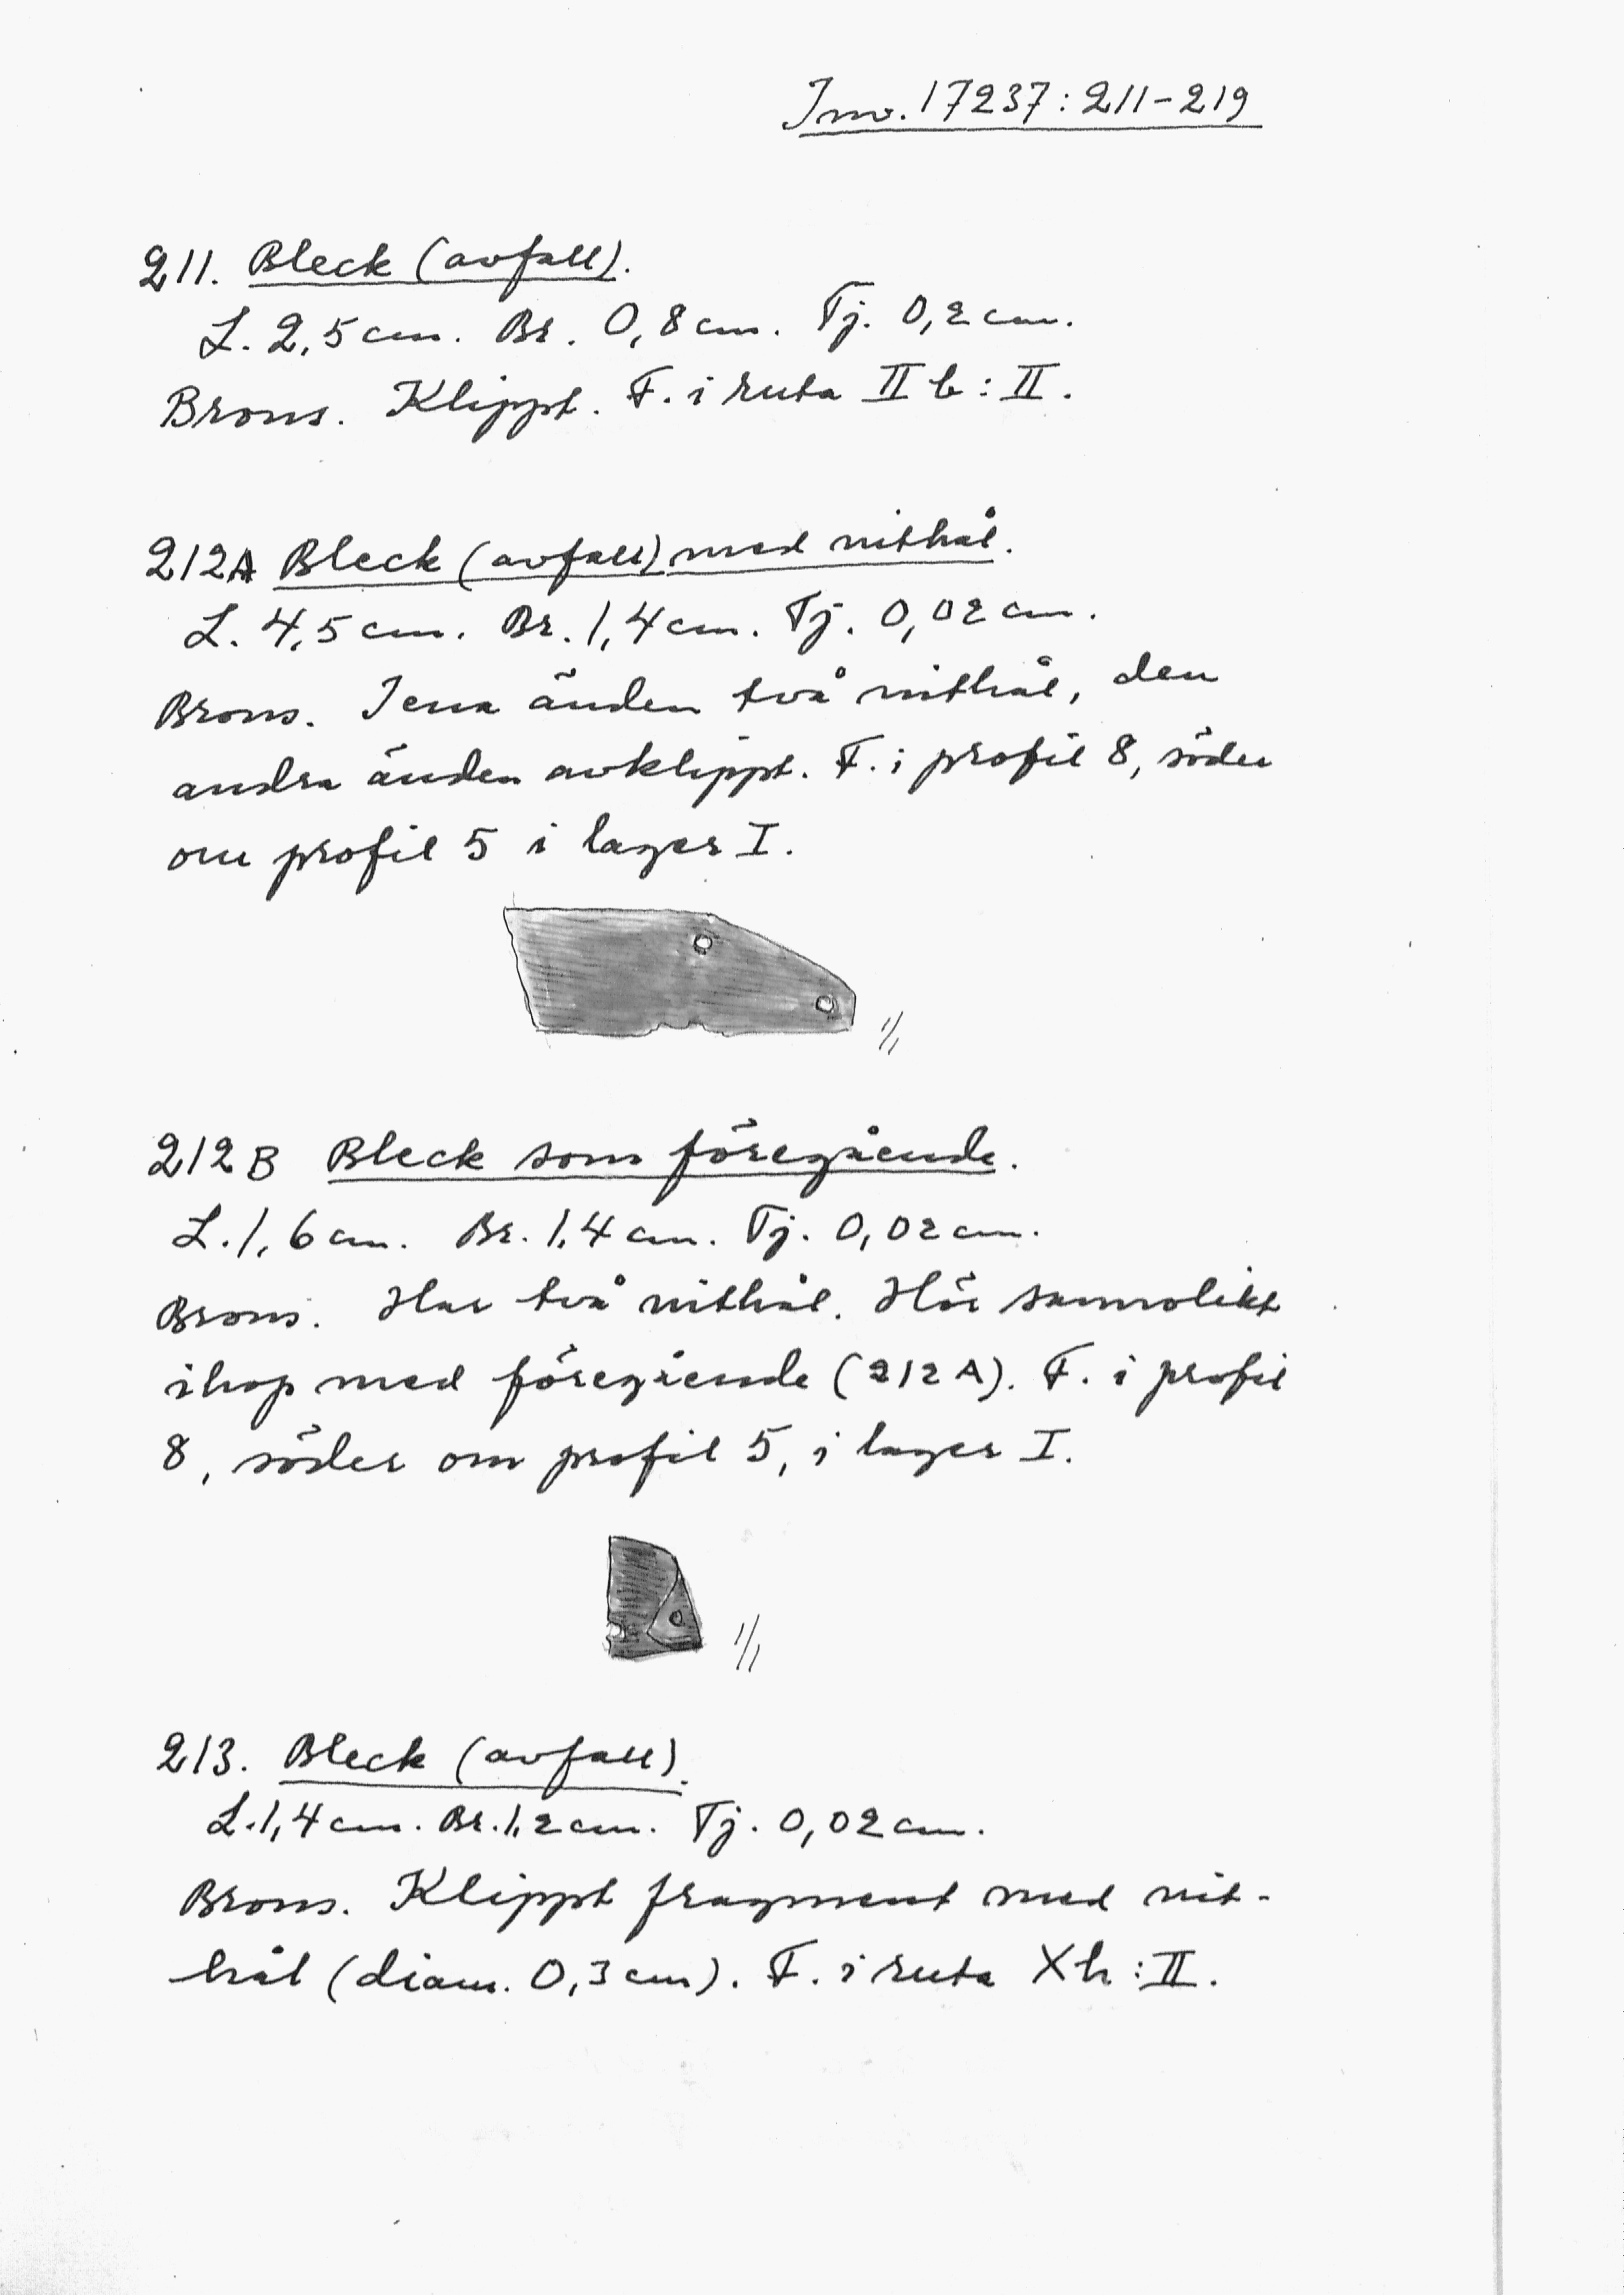 Inv. 17237:211-219
211. Bleck (avfall).
L. 2,5 cm. Br. 0,8 cm. Tj. 0,2 cm.
Brons. Klippt. F. i ruta II b : II.
212A Bleck (avfall) med nithål.
L. 4,5 cm. Br. 1,4 cm. Tj. 0,02 cm.
Brons. I ena änden två nithål, den
andra änden avklippt. F. i profil 8, söder
om profil 5 i lager I.
1/1
212B Bleck som föregående.
L. 1,6 cm. Br. 1,4 cm. Tj. 0,02 cm.
Brons. Har två nithål. Hör sannolikt
ihop med föregående (212A). F. i profil
8, söder om profil 5, i lager I.
1/1
213. Bleck (avfall).
L. 1,4 cm. Br. 1,2 cm. Tj. 0,02 cm.
Brons. Klippt fragment med nit-
hål (diam. 0,3 cm). F. i ruta X h : II.